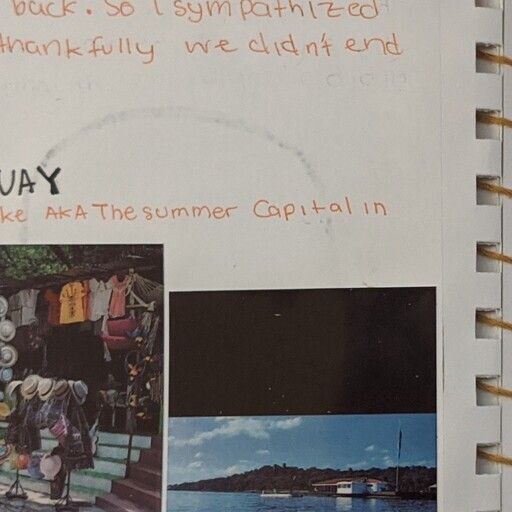 back. So I sympathized
thankfully we didn't end
UAY
ke AKA The summer Capital in